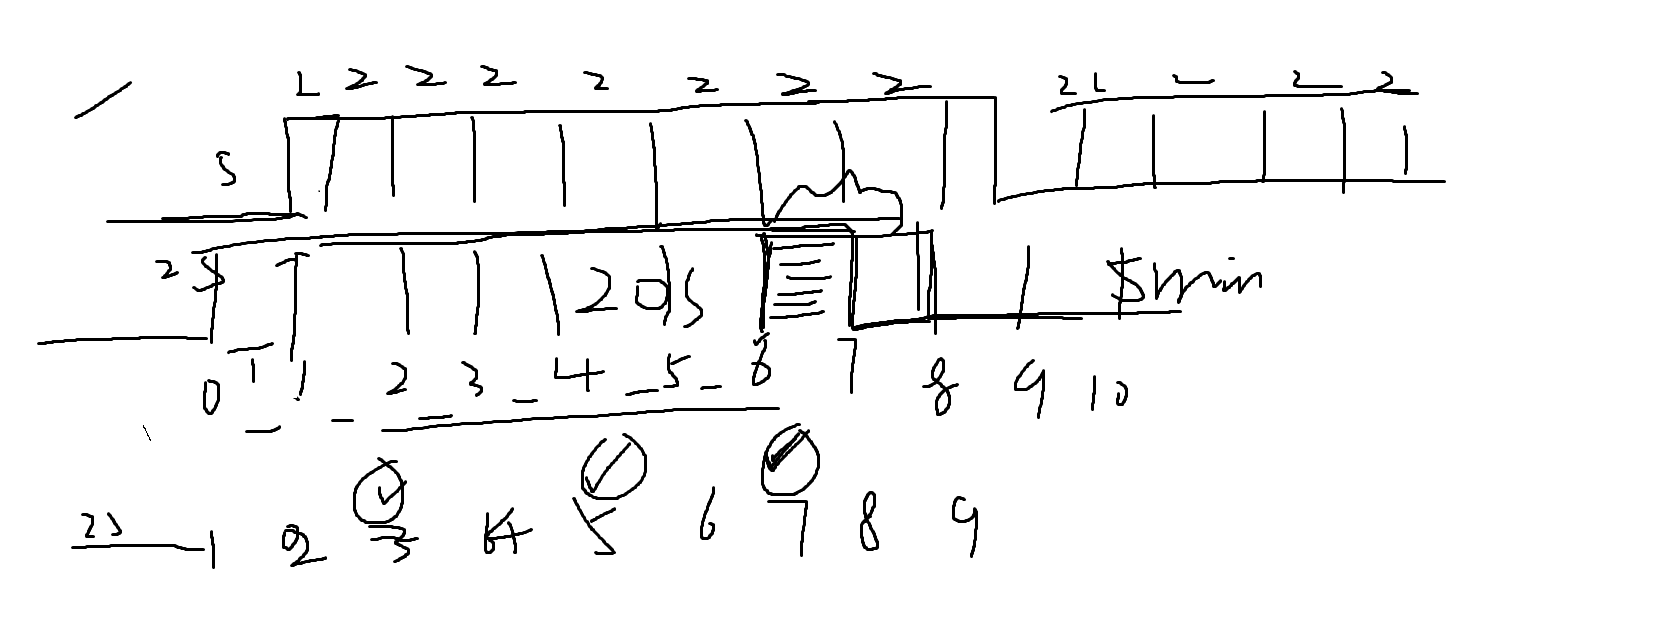 2 2 2 2 2 2 2 2 2 2
S
2S 20S 5min
0 1 2 3 4 5 6 7 8 9 10
2S 1 2 3 4 5 6 7 8 9